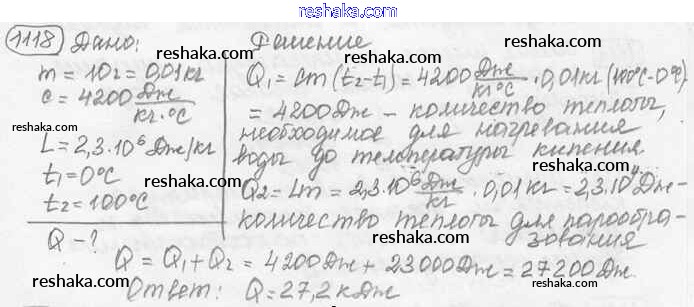 reshaka.com
1118 Дано: Решение
m = 10г = 0,01кг
c = 4200 Дж/кг·°C
L = 2,3·10⁶ Дж/кг
t₁ = 0°C
t₂ = 100°C
Q - ?
Q₁ = cm(t₂-t₁) = 4200 Дж/кг°C · 0,01кг (100°C-0°C)
= 4200Дж - количество теплоты,
необходимое для нагревания
воды до температуры кипения
Q₂ = Lm = 2,3·10⁶ Дж/кг · 0,01кг = 2,3·10⁴ Дж -
количество теплоты для парообра-
зования
Q = Q₁ + Q₂ = 4200Дж + 23000Дж = 27200Дж.
Ответ: Q = 27,2кДж
reshaka.com
reshaka.com
reshaka.com
reshaka.com
reshaka.com
reshaka.com
reshaka.com
reshaka.com
reshaka.com
reshaka.com
reshaka.com